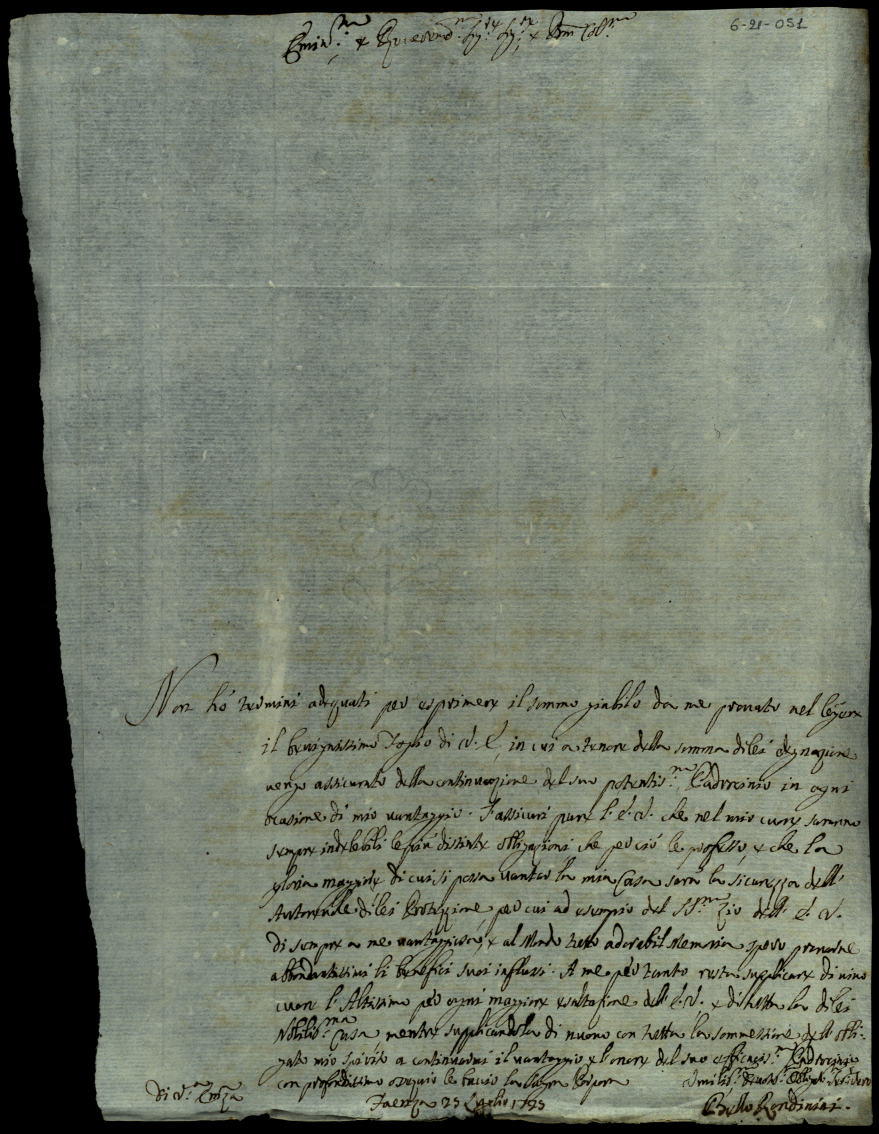 6-21-051
Emin.mo e Reverend.mo Sig.re Sig.re e Pron Col.mo
Non hò termini adequati per esprimere il sommo giubilo da me provato nel legere
il benignissimo Foglio di V. E., in cui a tenore della somma di lei degnazione
vengo assicurato della continuazione del suo potentis.mo Padrocinio in ogni
ocasione di mio vantaggio. S'assicuri pure l'E. V. che nel mio cuore saranno
sempre indelebili le più distinte obligazioni che perciò le professo, e che la
gloria maggiore di cui si possa vantar la mia Casa sarà la sicurezza dell'
Autorevole di lei Protezione, per cui ad esempio del SS.mo Zio dell'E. V.
di sempre a me vantaggiosa, e al Mondo tutto adorabil Memoria spero provarne
abbondantissimi li benefici suoi influssi. A me per tanto resta supplicare di vivo
cuore l'Altissimo per ogni maggiore esaltazione dell'E. V. e di tutta la di lei
Nobilis.ma Casa, mentre supplicandola di nuovo con tutta la sommessione dell'obli-
gato mio spirito a continuarmi il vantaggio e l'onore del suo efficacis.mo Padrocinio
con profondissimo ossequio le bacio la Sagra Porpora
Di V.ra Em.za
Faenza 23 Luglio 1793
Umilis.mo Devotis.mo Obligat.mo Ser.re Vero
Rondinini.